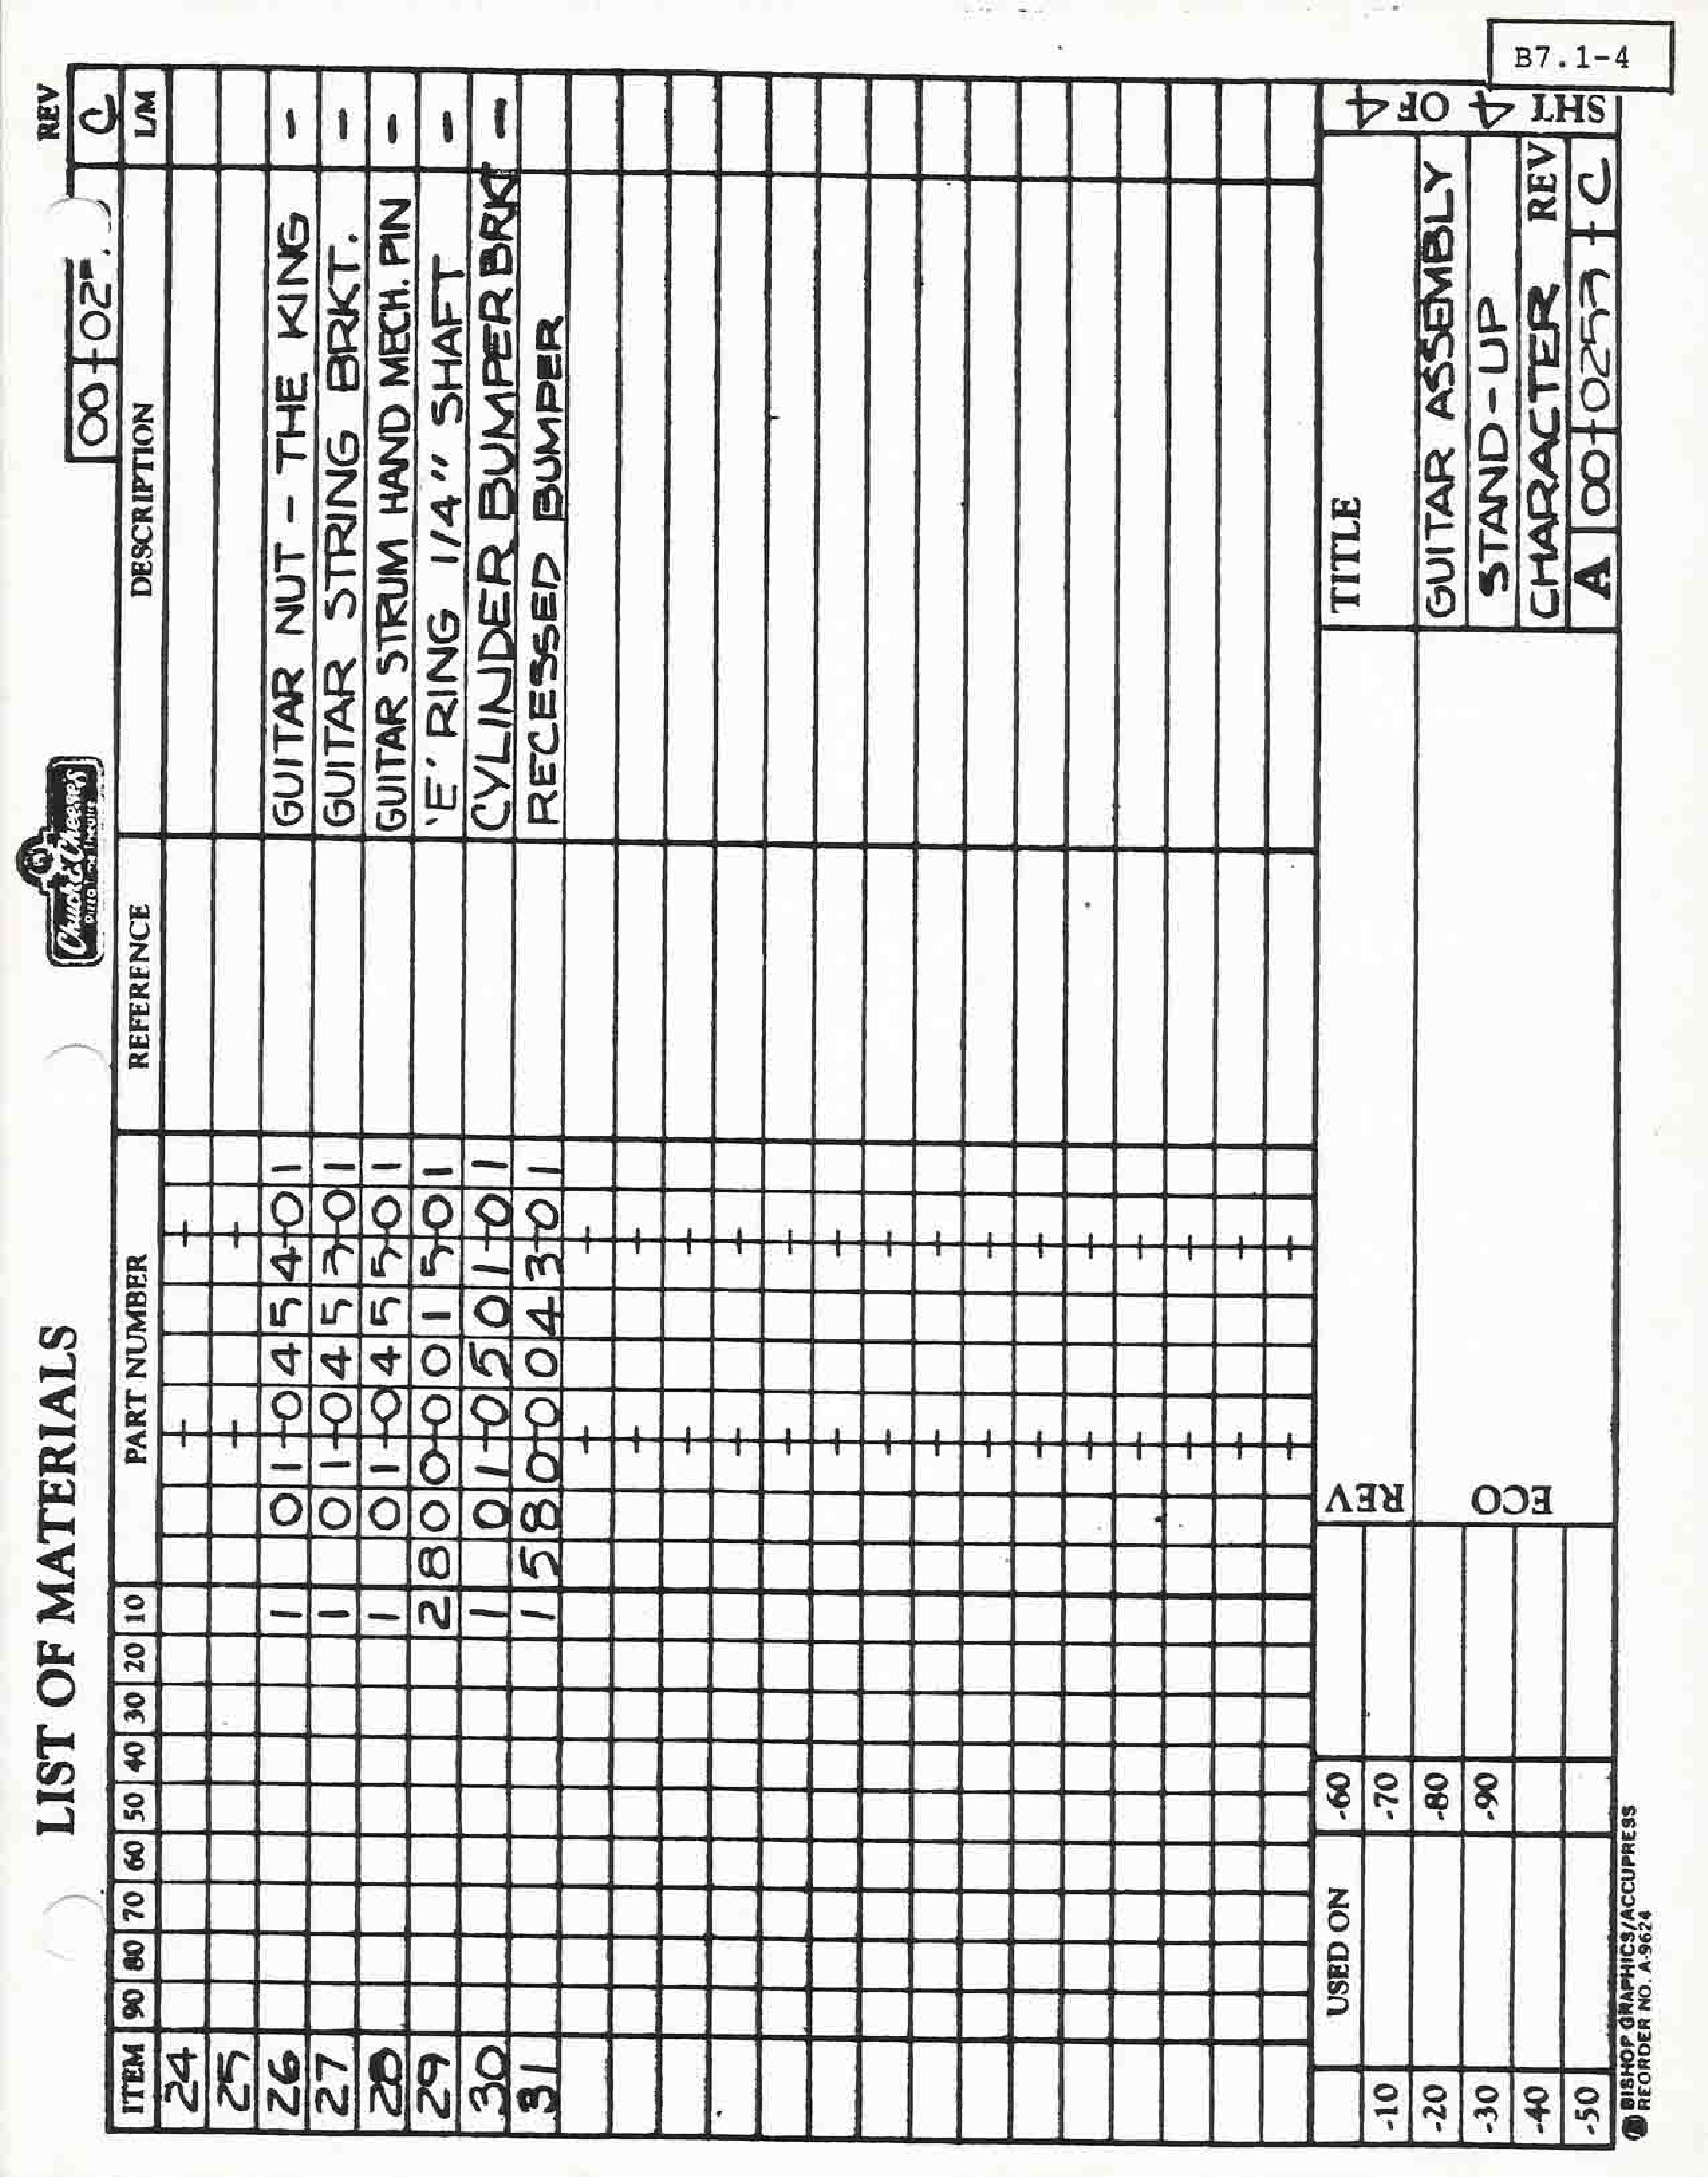 B7.1-4
LIST OF MATERIALS
Chuck E. Cheese's
Pizza Time Theatre
REV
00+02
C
ITEM 90 80 70 60 50 40 30 20 10 PART NUMBER REFERENCE DESCRIPTION L/M
24
25
26 1 01-0454-01 GUITAR NUT - THE KING -
27 1 01-0453-01 GUITAR STRING BRKT. -
28 1 01-0455-01 GUITAR STRUM HAND MECH. PIN -
29 2 800-0015-01 'E' RING 1/4" SHAFT -
30 1 01-0501-01 CYLINDER BUMPER BRKT -
31 1 580-0043-01 RECESSED BUMPER
USED ON
-10
-20
-30
-40
-50
-60
-70
-80
-90
REV
ECO
TITLE
GUITAR ASSEMBLY
STAND-UP
CHARACTER REV
A 00+0257+C
SHT 4 OF 4
BISHOP GRAPHICS/ACCUPRESS
REORDER NO. A-9624